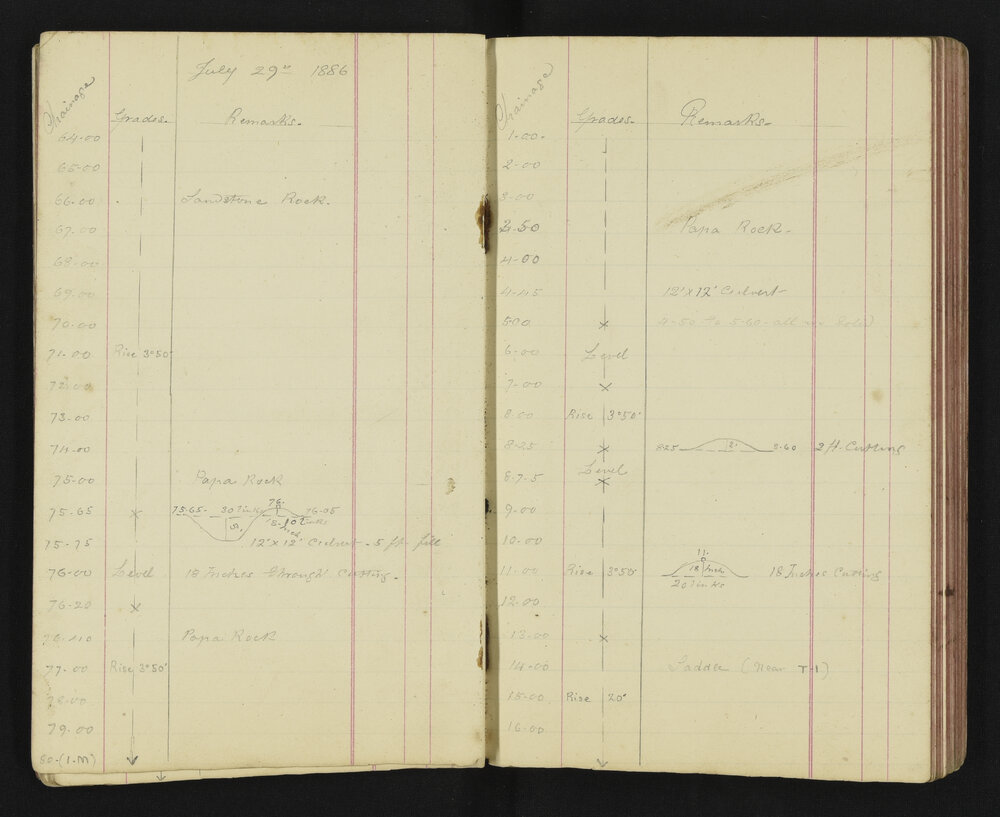 July 29th 1886
Chainage Grades. Remarks.
64.00
65.00
66.00 Sandstone Rock.
67.00
68.00
69.00
70.00
71.00 Rise 3°50'
72.00
73.00
74.00
75.00 Papa Rock
76.
75.65 x 75.65. 30 links 76.05
5' 18 Inch 10 links
75.75 12'x12' Culvert. 5 ft. fill
76.00 Level 18 Inches through Cutting.
76.20 x
76.40 Papa Rock
77.00 Rise 3°50'
78.00
79.00
80.(1.M)
Chainage Grades. Remarks.
1.00.
2.00
3.00
3.50 Papa Rock.
4.00
4.45 12'x12' Culvert
5.00 x 4.50 to 5.60. all in Solid
6.00 Level
7.00 x
8.00 Rise 3°50'
8.25 x 825 2. 8.60 2 ft. Cutting
Level
8.7.5 x
9.00
10.00
11.
11.00 Rise 3°50' 18 Inch 18 Inches Cutting
20 links
12.00
13.00 x
14.00 Ladder (Near T.1)
15.00 Rise 20'
16.00